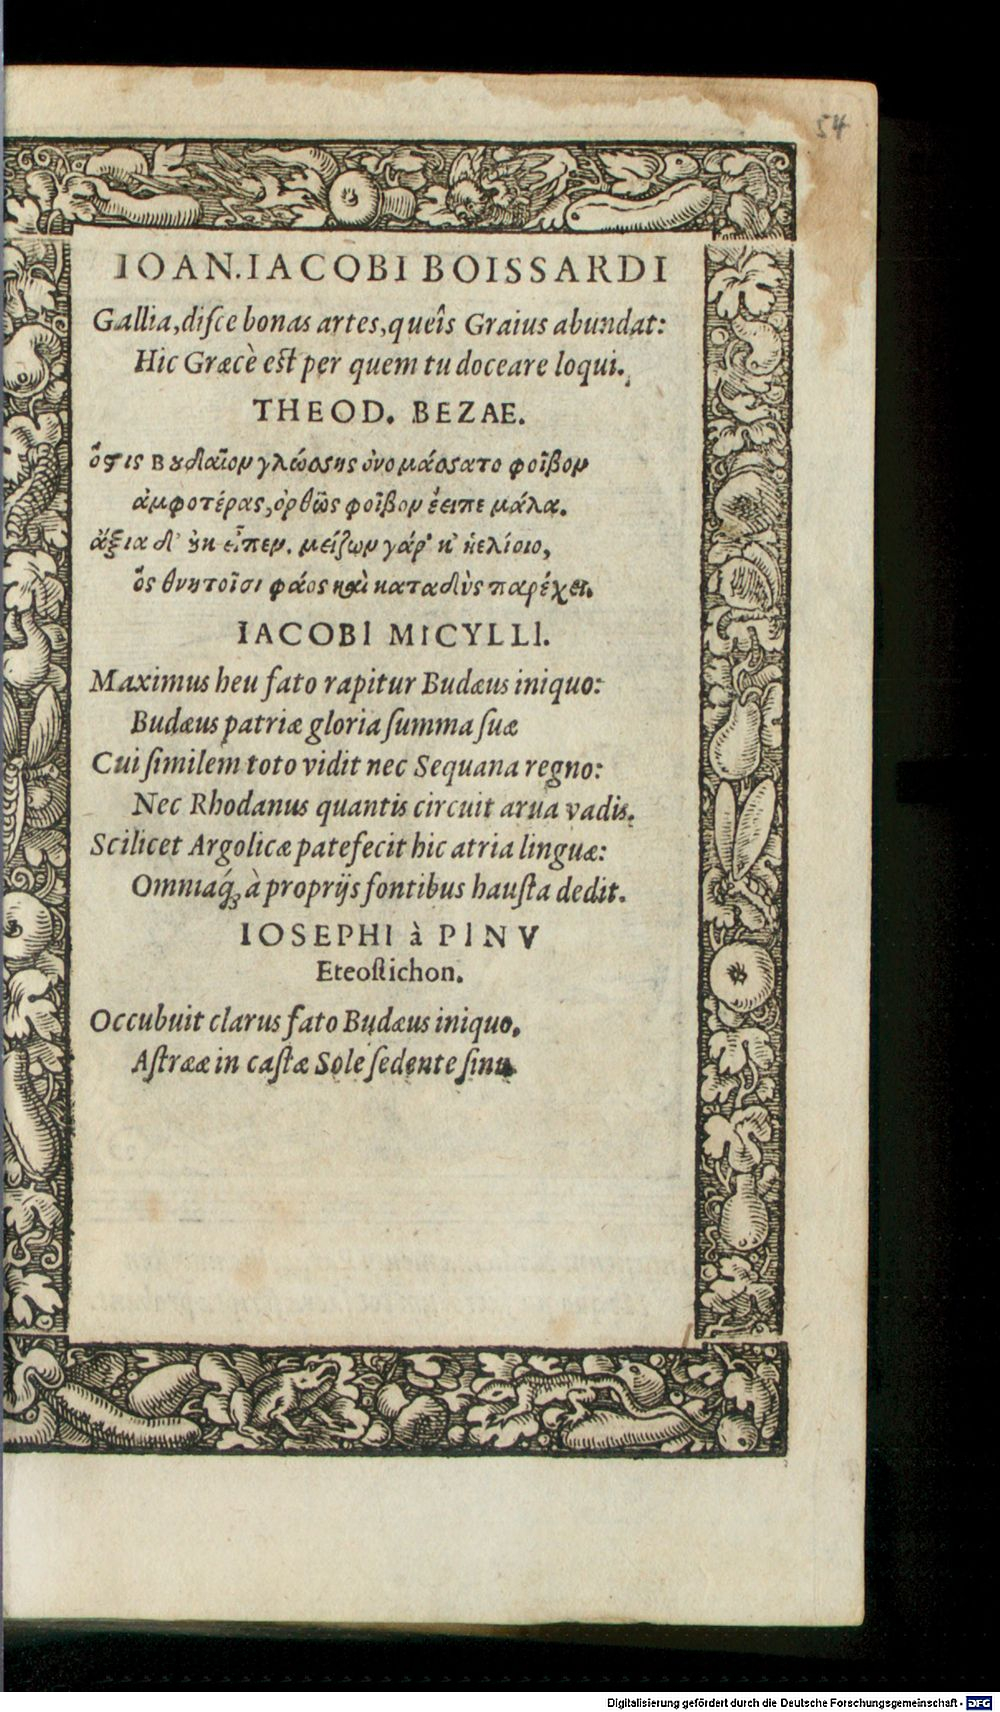 54
IOAN. IACOBI BOISSARDI
Gallia, diſce bonas artes, queîs Graius abundat:
Hic Græcè eſt per quem tu doceare loqui.
THEOD. BEZAE.
ὅςις Βȣδαῖον γλώσσης ὀνομάσσατο φοῖβον
ἀμφοτέρας, ὀρθῶς φοῖβον ἔειπε μάλα.
ἄξια δ' ȣκ εἶπεν. μείζων γάρ κ' ἠελίοιο,
ὃς θνητοῖσι φάος καὶ καταδὺς παρέχει.
IACOBI MICYLLI.
Maximus heu fato rapitur Budæus iniquo:
Budæus patriæ gloria ſumma ſuæ
Cui ſimilem toto vidit nec Sequana regno:
Nec Rhodanus quantis circuit arua vadis.
Scilicet Argolicæ patefecit hic atria linguæ:
Omniaq́ꝫ à proprijs fontibus hauſta dedit.
IOSEPHI à PINV
Eteoſtichon.
Occubuit clarus fato Budæus iniquo,
Aſtrææ in caſtæ Sole ſedente ſinu.
Digitalisierung gefördert durch die Deutsche Forschungsgemeinschaft - DFG